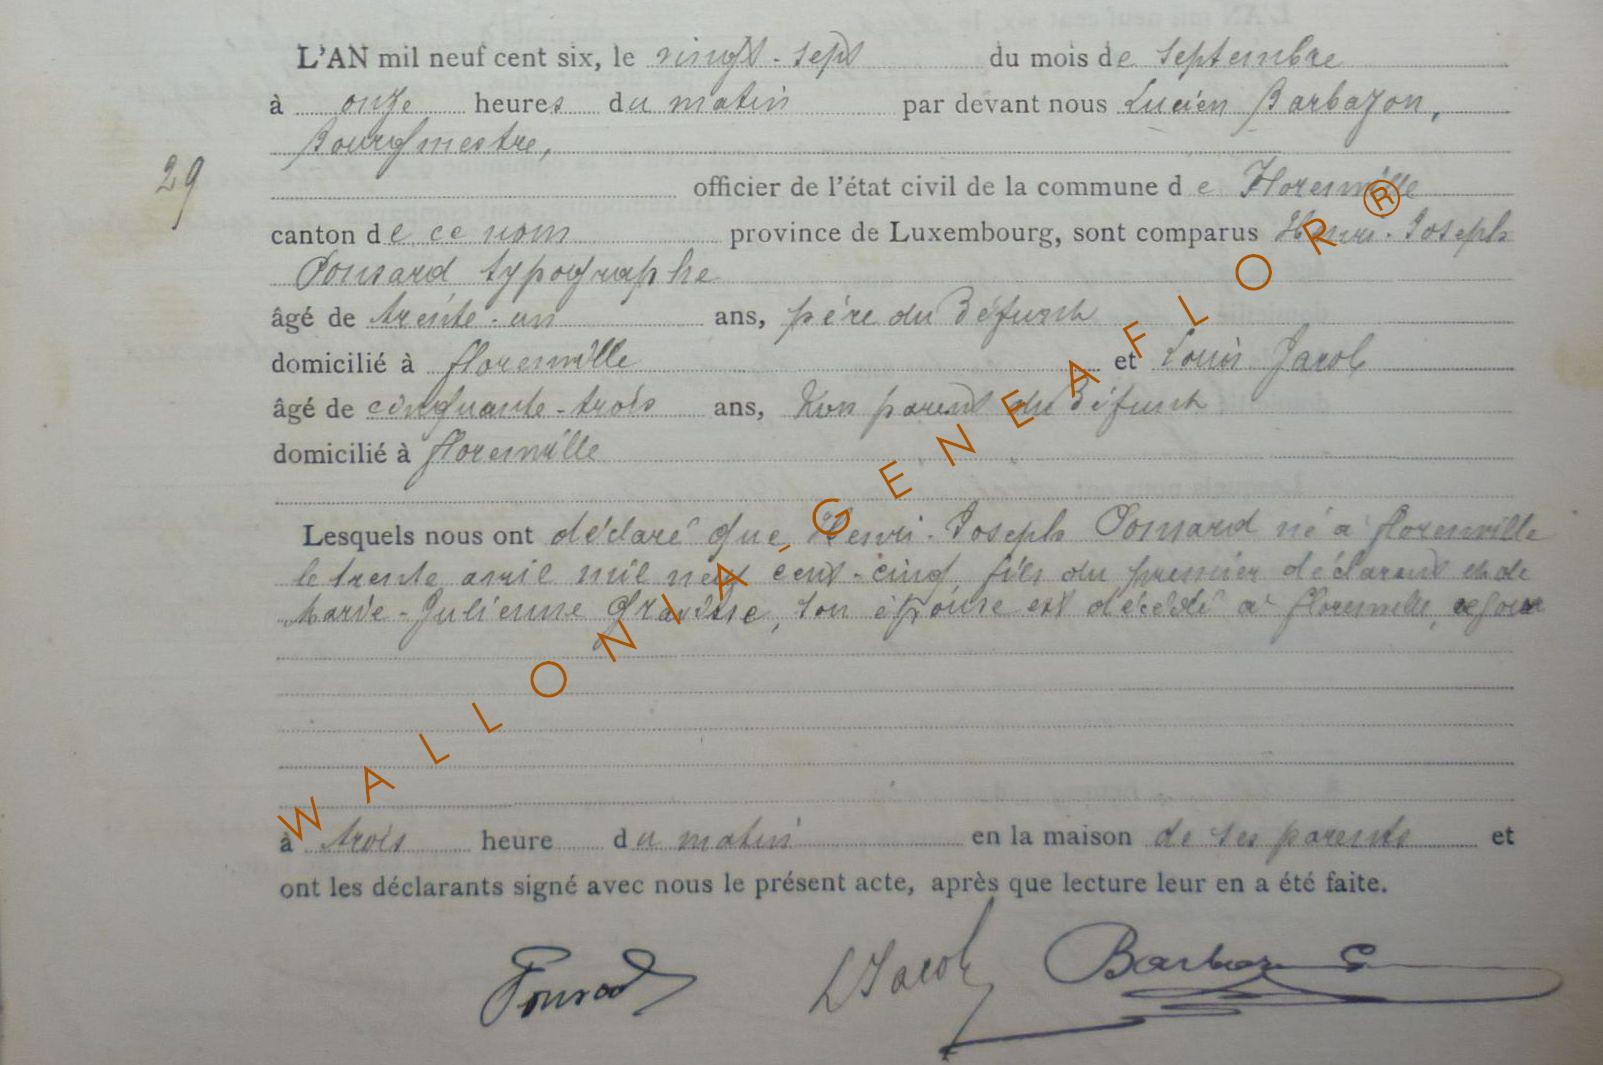 L'AN mil neuf cent six, le vingt-sept du mois de septembre
à onze heures du matin par devant nous Lucien Barbazon,
Bourgmestre,
29
officier de l'état civil de la commune de Florenville
canton de ce nom province de Luxembourg, sont comparus Henri-Joseph
Ponsard typographe
âgé de trente-un ans, père du défunt
domicilié à florenville et Louis Jacob
âgé de cinquante-trois ans, Non parent du défunt
domicilié à florenville
Lesquels nous ont déclaré que Henri-Joseph Ponsard né à florenville
le trente avril mil neuf cent-cinq, fils du premier déclarant et de
Marie-Julienne, son épouse est décédé à florenville, ce jour
à trois heure du matin en la maison de ses parents et
ont les déclarants signé avec nous le présent acte, après que lecture leur en a été faite.
Ponsard LJacob Barbazon
WALLONIA-GENEAFLOR®